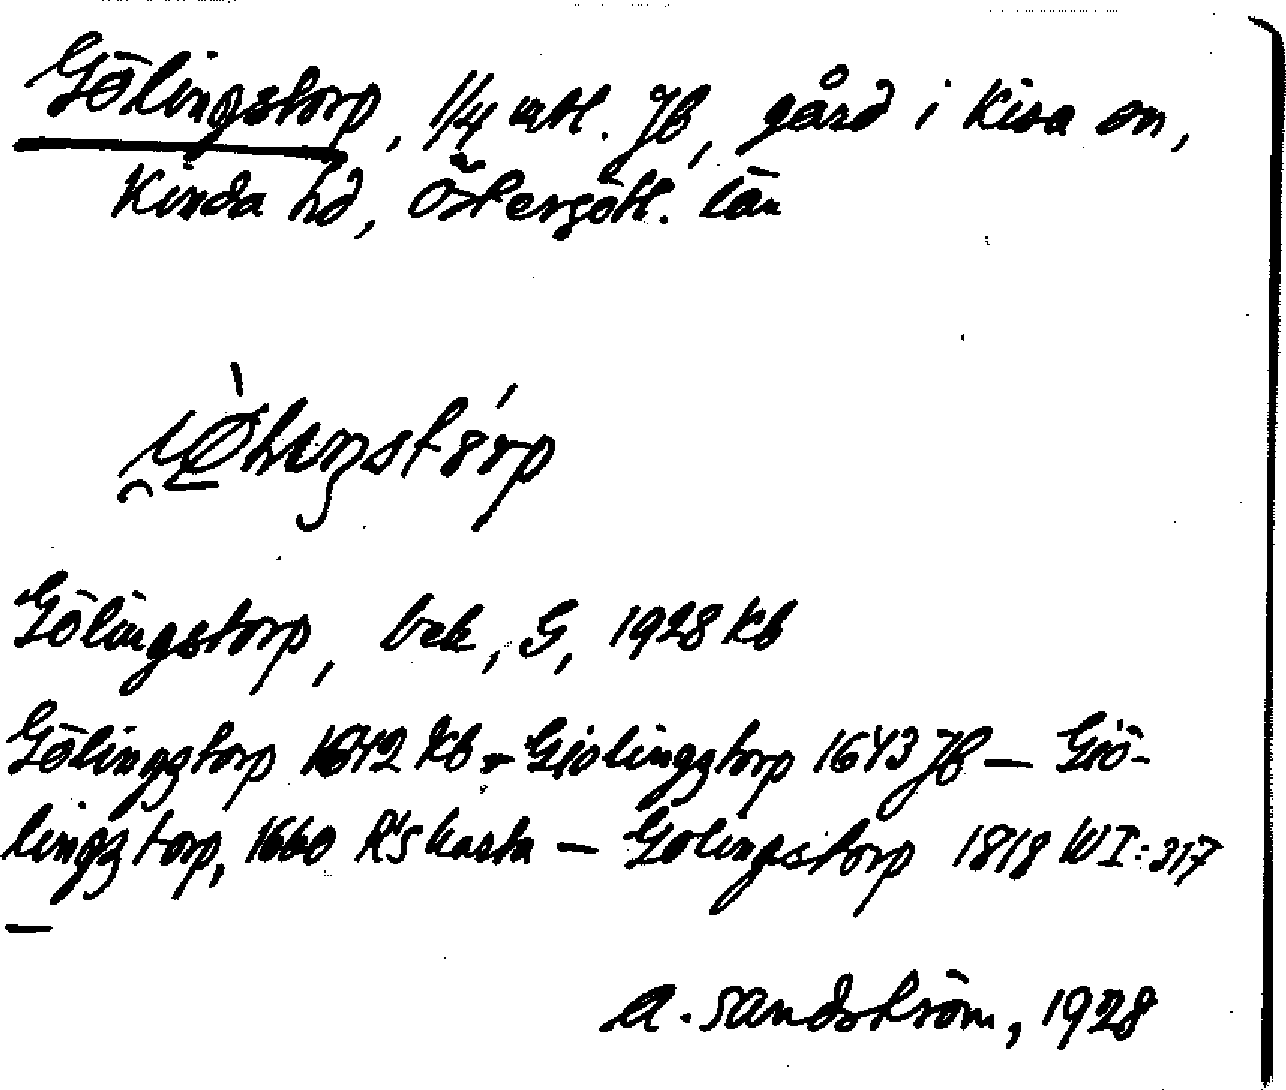 Gölingstorp, 1/4 mtl. Jb, gård i Kisa sn,
Kinda hd, Östergötl. län
Gölingstorp, bek, G, 1928 Kb
Gölinggtorp 1642 Kb – Giolinggtorp 1643 Jb — Giö-
linggtorp, 1660 R's karta — Golingstorp 1818 WI: 317
—
A. Sandström, 1928